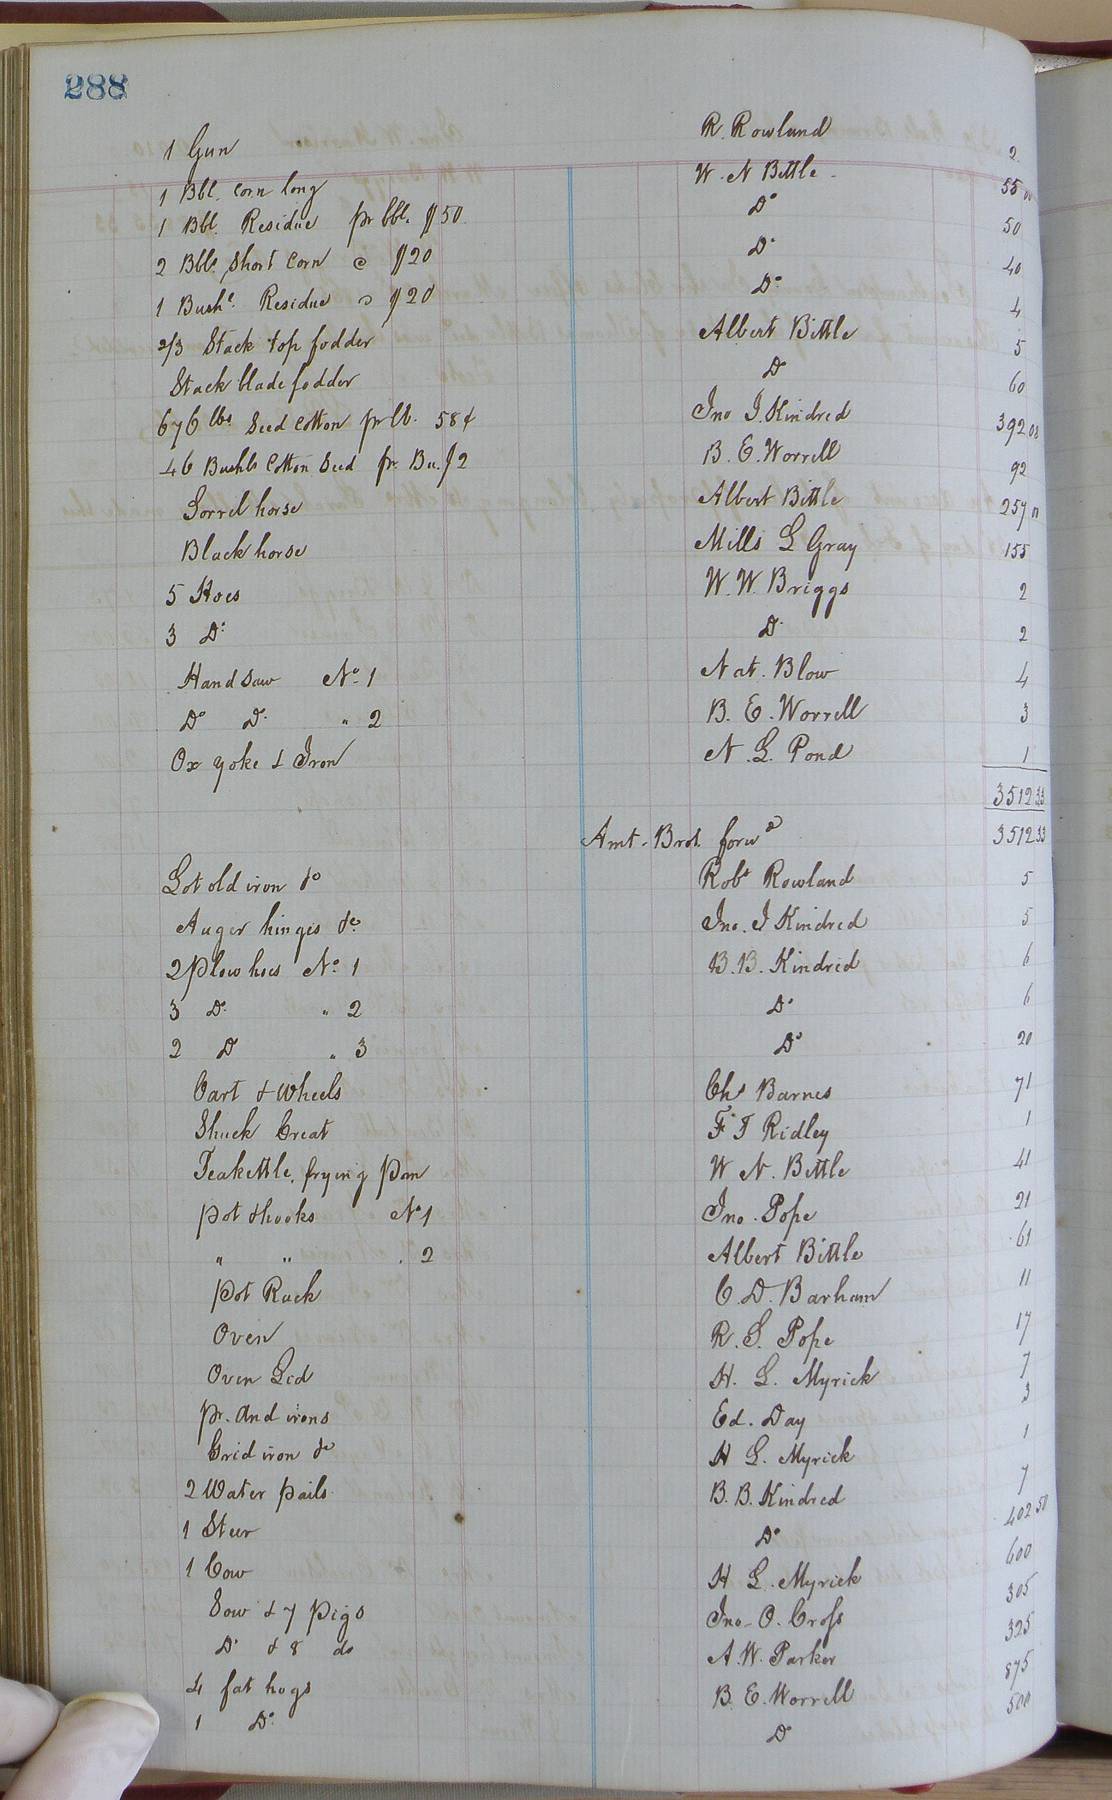 288
1 Gun R. Rowland 2
1 Bbl. Corn long W. N Bittle 55 00
1 Bbl. Residue pr bbl. $50. Do 50
2 Bbls Short Corn @ $20 Do 40
1 Bushl. Residue @ $20 Do 4
2/3 Stack top fodder Albert Bittle 5
Stack blade fodder Do 60
676 lbs Seed Cotton pr lb. 58¢ Jno J. Kindred 392 08
46 Bushls Cotton Seed pr. Bu. $2 B. E. Worrell 92
Sorrel horse Albert Bittle 257
Black horse Mills L Gray 155
5 Hoes W. W. Briggs 2
3 Do Do 2
Hand Saw No. 1 Nat. Blow 4
Do Do " 2 B. E. Worrell 3
Ox yoke & Iron N. L. Pond 1
3512 33
Amt. Brot. forwd 3512 33
Lot old iron &c Robt Rowland 5
Auger hinges &c Jno. J Kindred 5
2 Plow hoes No. 1 B. B. Kindred 6
3 Do " 2 Do 6
2 Do " 3 Do 20
Cart & Wheels Chs Barnes 71
Shuck Creat F. T Ridley 1
Teakettle, frying pan W N. Bittle 41
pot & hooks No 1 Jno. Pope 21
" " . 2 Albert Bittle 61
pot Rack C. D. Barham 11
Oven R. S. Pope 17
Oven Lid H. L. Myrick 7
pr. And irons Ed. Day 3
Grid iron &c H L. Myrick 1
2 Water pails B. B. Kindred 7
1 Steer Do 402 50
1 Cow H L. Myrick 600
Sow & 7 Pigs Jno. O. Cross 305
Do & 8 do A. W. Parker 325
4 fat hogs B. E. Worrell 875
1 Do Do 500